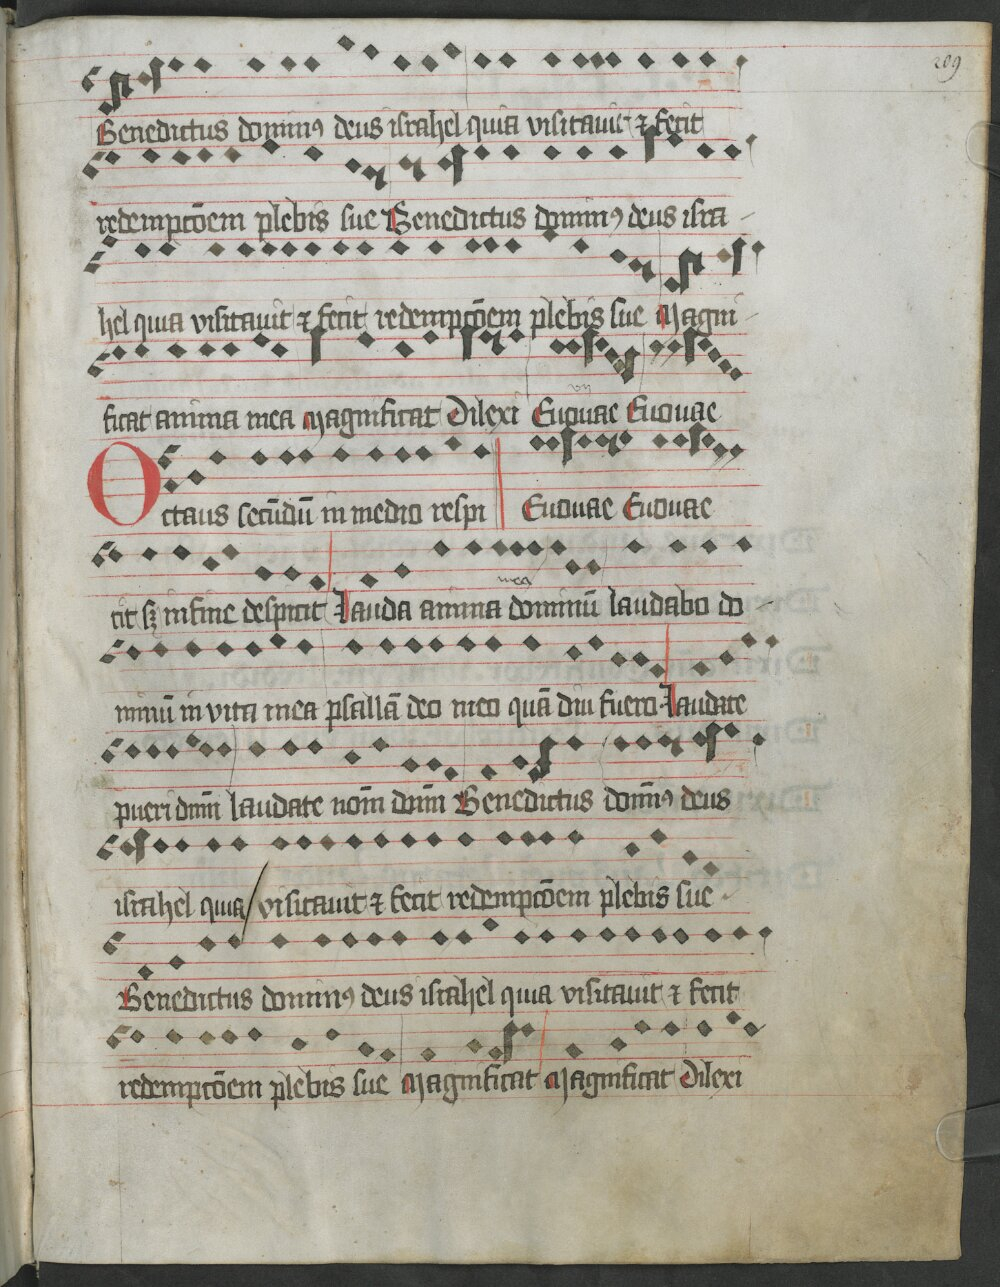 209
Benedictus dominꝰ deus israhel quia visitauit ⁊ fecit
redempcōem plebis sue Benedictus dominꝰ deus isra
hel quia visitauit ⁊ fecit redempcōem plebis sue Magni
ficat anima mea Magnificat Dilexi Euouae Euouae
Octaus secūdū in medio respi Euouae Euouae
cit sꝫ in fine despicit Lauda anima dominū laudabo do
mea
minū in vita mea psallā deo meo quā diu fuero Laudate
pueri dnm laudate nom̄ dnm̄ Benedictus dom̄nꝰ deus
israhel quia / visitauit ⁊ fecit redempcōem plebis sue
Benedictus dominꝰ deus israhel quia visitauit ⁊ fecit
redempcōem plebis sue Magnificat Magnificat Dilexi